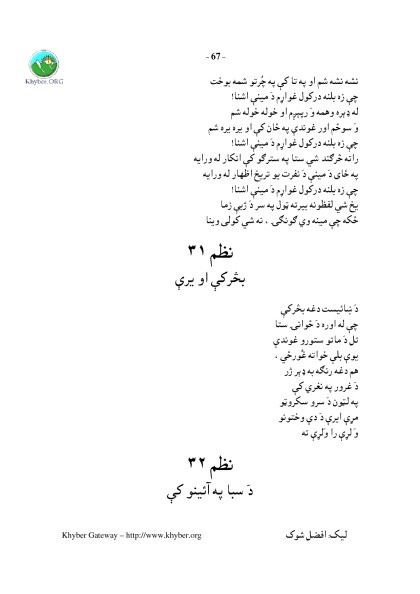 - 67 -
Khyber.ORG
نشه نشه شم او په تا کې په چُرتو شمه بوخت
چې زه بلنه درکول غواړم دَ مينې اشنا!
له ډېره وهمه وَ رپېږم او خوله خوله شم
وَ سوځم اور غوندې په ځان کې او يره يره شم
چې زه بلنه درکول غواړم دَ مينې اشنا!
راته څرګند شي ستا په سترګو کې انکار له ورايه
په ځای دَ مينې دَ نفرت يو تريخ اظهار له ورايه
چې زه بلنه درکول غواړم دَ مينې اشنا!
يخ شي لفظونه بيرته ټول په سر دَ ژبې زما
ځکه چې مينه وي ګونګۍ ، نه شي کولی وينا
نظم ۳۱
بڅرکې او يرې
دَ ښائيست دغه بڅرکې
چې له اوره دَ ځوانۍ ستا
تل دَ ماتو ستورو غوندې
يوې بلې خواته غُورځي ،
هم دغه رنګه به ډېر ژر
دَ غرور په نغري کې
په لټون دَ سرو سکروټو
مړې ايرې دَ دې وختونو
وَ لړې را ولړې ته
نظم ۳۲
دَ سبا په آئينو کې
Khyber Gateway – http://www.khyber.org
ليک: افضل شوک